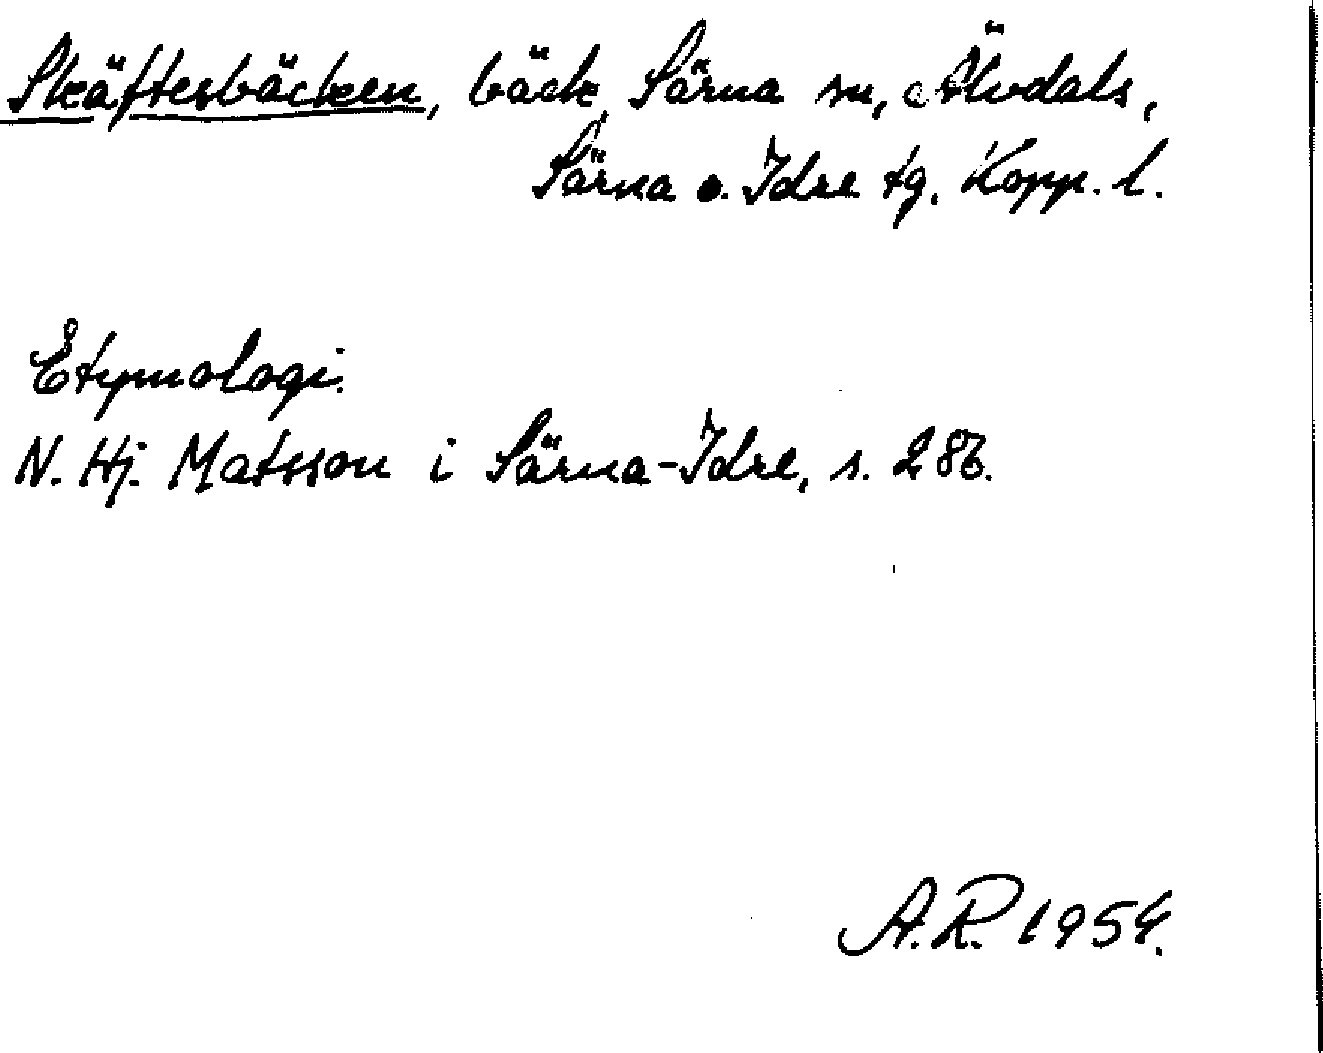 Skäftesbäcken, bäck, Särna sn, Älvdals,
Särna o. Idre tg, Kopp. l.
Etymologi.
N. Hj. Matsson i Särna-Idre, s. 286.
A.R. 1954.